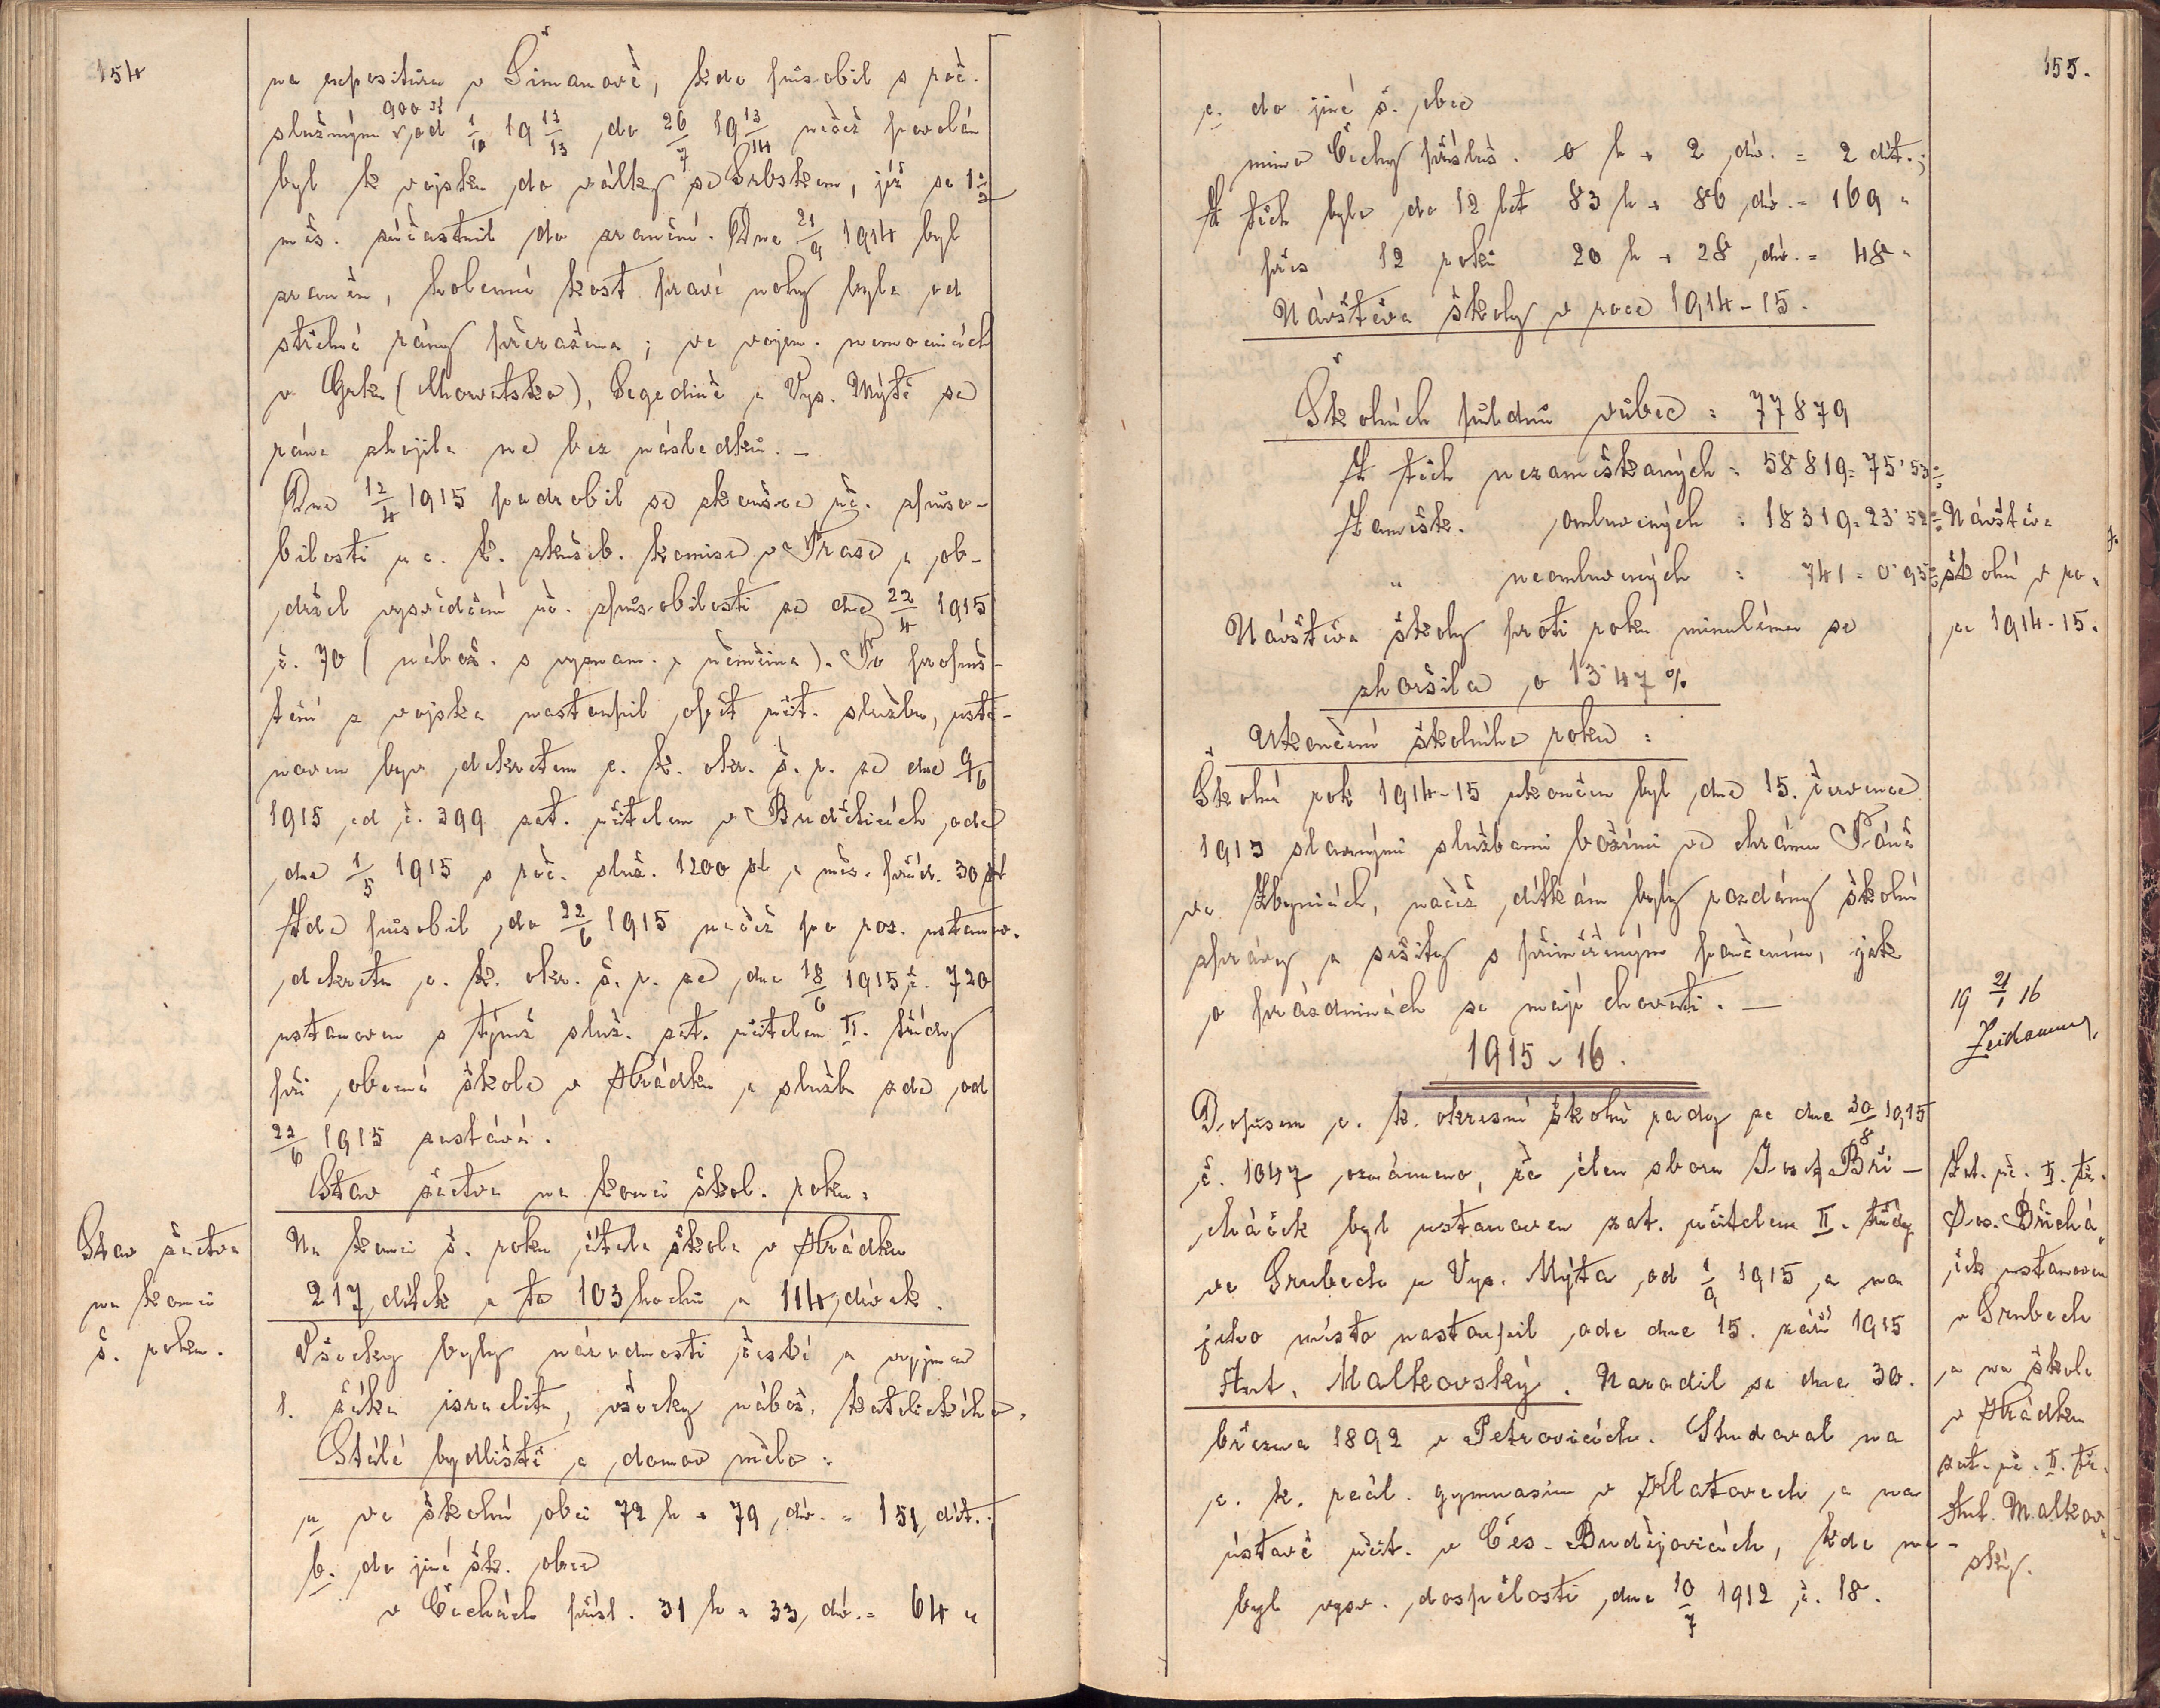 154
na expositura v Šimanově, kde působil s roč.
služným 900 K od 1/10 19 12/13 do 26/7 19 13/14 načež povolán
byl k vojsku do války se Srbskem, jíž se 1 1/2
měs. súčastnil do zranění. Dne 21/9 1914 byl
zraněn, holenní kost pravé nohy byla od
střelné rány přeražena; ve vojen. nemocnicích
v Grku (Chorvatsko), Segedíně a Vys. Mýtě se
rána zhojila ne bez následků. –
Dne 12/4 1915 podrobil se zkoušce uč. způso-
bilosti u c. k. zkušeb. komise v Praze a ob-
držel vysvědčení uč. způsobilosti ze dne 22/4 1915
č. 70 (nábož. s vyznam. a němčina). Po propuš-
tění z vojska nastoupil opět učit. službu, usta-
noven byv dekretem c. k. okr. š. r. ze dne 9/6
1915 ad č. 399 zat. učitelem v Buděticích ode
dne 1/5 1915 s roč. služ. 1200 K a měs. příd. 30 K
Zde působil do 22/6 1915 načež po roz. ustanov.
dekretu c. k. okr. š. r. ze dne 18/6 1915 č. 720
ustanoven s týmž služ. zat. učitelem II. třídy
při obecné škole v Hrádku a službu zde od
22/6 1915 zastává.
Stav žactva na konci škol. roku:
Stav žactva
na konci
š. roku.
Na konci š. roku čítala škola v Hrádku
217 dítek a to 103 hochů a 114 dívek.
Všecky byly národnosti české a vyjma
1. žáka israelitu, všecky nábož. katolického.
Stálé bydliště a domov mělo:
a. ve školní obci 72 h + 79 dív. = 151 dít.;
b. do jiné šk. obce
v Čechách přísl. 31 h + 33 dív. = 64 "
155.
c. do jiné š. obce
mimo Čechy přísluš. 0 h + 2 dív. = 2 dít.;
Z těch bylo do 12 let 83 h + 86 dív. = 169 "
přes 12 roků 20 h + 28 dív. = 48 "
Návštěva školy v roce 1914-15.
Školních půldnů vůbec = 77879
Z těch nezameškaných = 58819 = 75˙53%
Zamešk. omluvených = 18319 = 23˙52%
" neomluvených = 741 = 0˙95%
Návštěva
školní v ro-
ce 1914-15.
Návštěva školy proti roku minulému se
zhoršila o 13˙47 %
Ukončení školního roku:
Školní rok 1914-15 ukončen byl dne 15. července
1915 slavnými službami božími ve chrámu Páně
ve Zbynicích, načež dítkám byly rozdány školní
zprávy a sešity s přiměřeným poučením, jak
o prázdninách se mají chovati. —
19 21/1 16
1915-16.
Dopisem c. k. okresní školní rady ze dne 30/8 1915
č. 1047 oznámeno, že člen sboru Josef Bři-
cháček byl ustanoven zat. učitelem II. třídy
ve Srubech u Vys. Mýta od 1/9 1915 a na
jeho místo nastoupil ode dne 15. září 1915
Ant. Malkovský. Narodil se dne 30.
března 1892 v Petrovicích. Studoval na
c. k. reál. gymnasiu v Klatovech a na
ústavě učit. v Čes. Budějovicích, kde na-
byl vysv. dospělosti dne 10/7 1912 č. 18.
Zat. uč. II. tř.
Jos. Břichá-
ček ustanoven
v Srubech
a na škole
v Hrádku
zat. uč. II. tř.
Ant. Malkov-
ský.